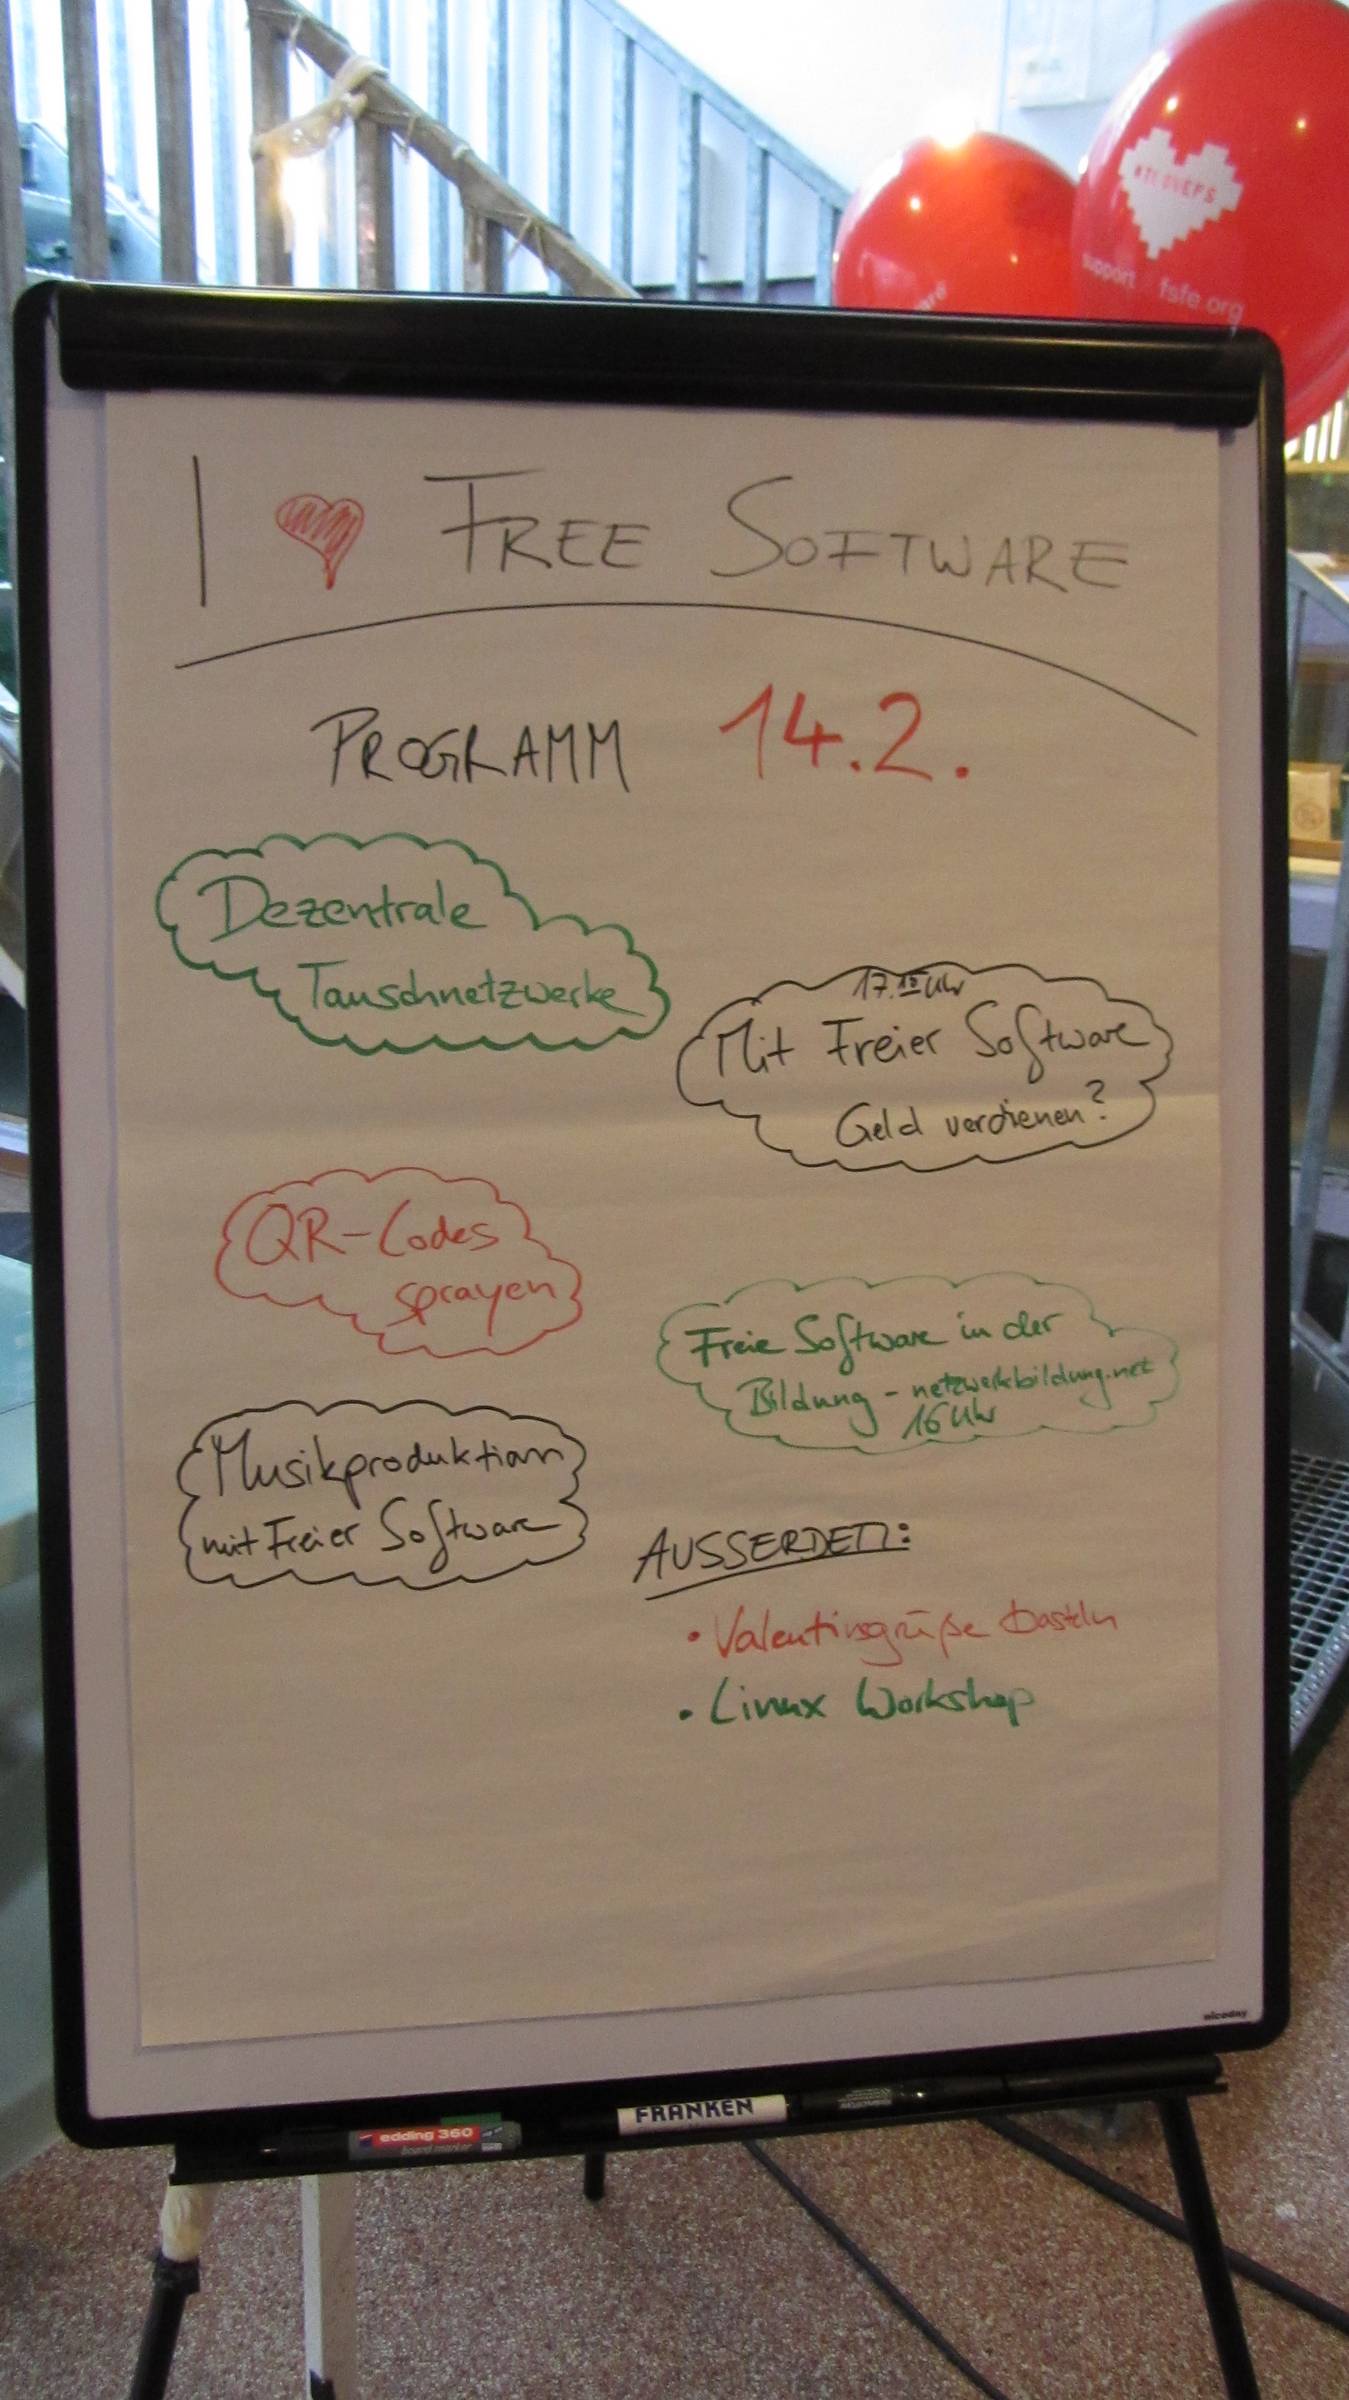 #ILOVEFS
support
fsfe.org
I ♥ FREE SOFTWARE
PROGRAMM 14.2.
Dezentrale
Tauschnetzwerke
17.15 Uhr
Mit Freier Software
Geld verdienen?
QR-Codes
sprayen
Freie Software in der
Bildung - netzwerkbildung.net
16 Uhr
Musikproduktion
mit Freier Software
AUSSERDEM:
• Valentinsgrüße basteln
• Linux Workshop
nicoday
FRANKEN
edding 360
board marker